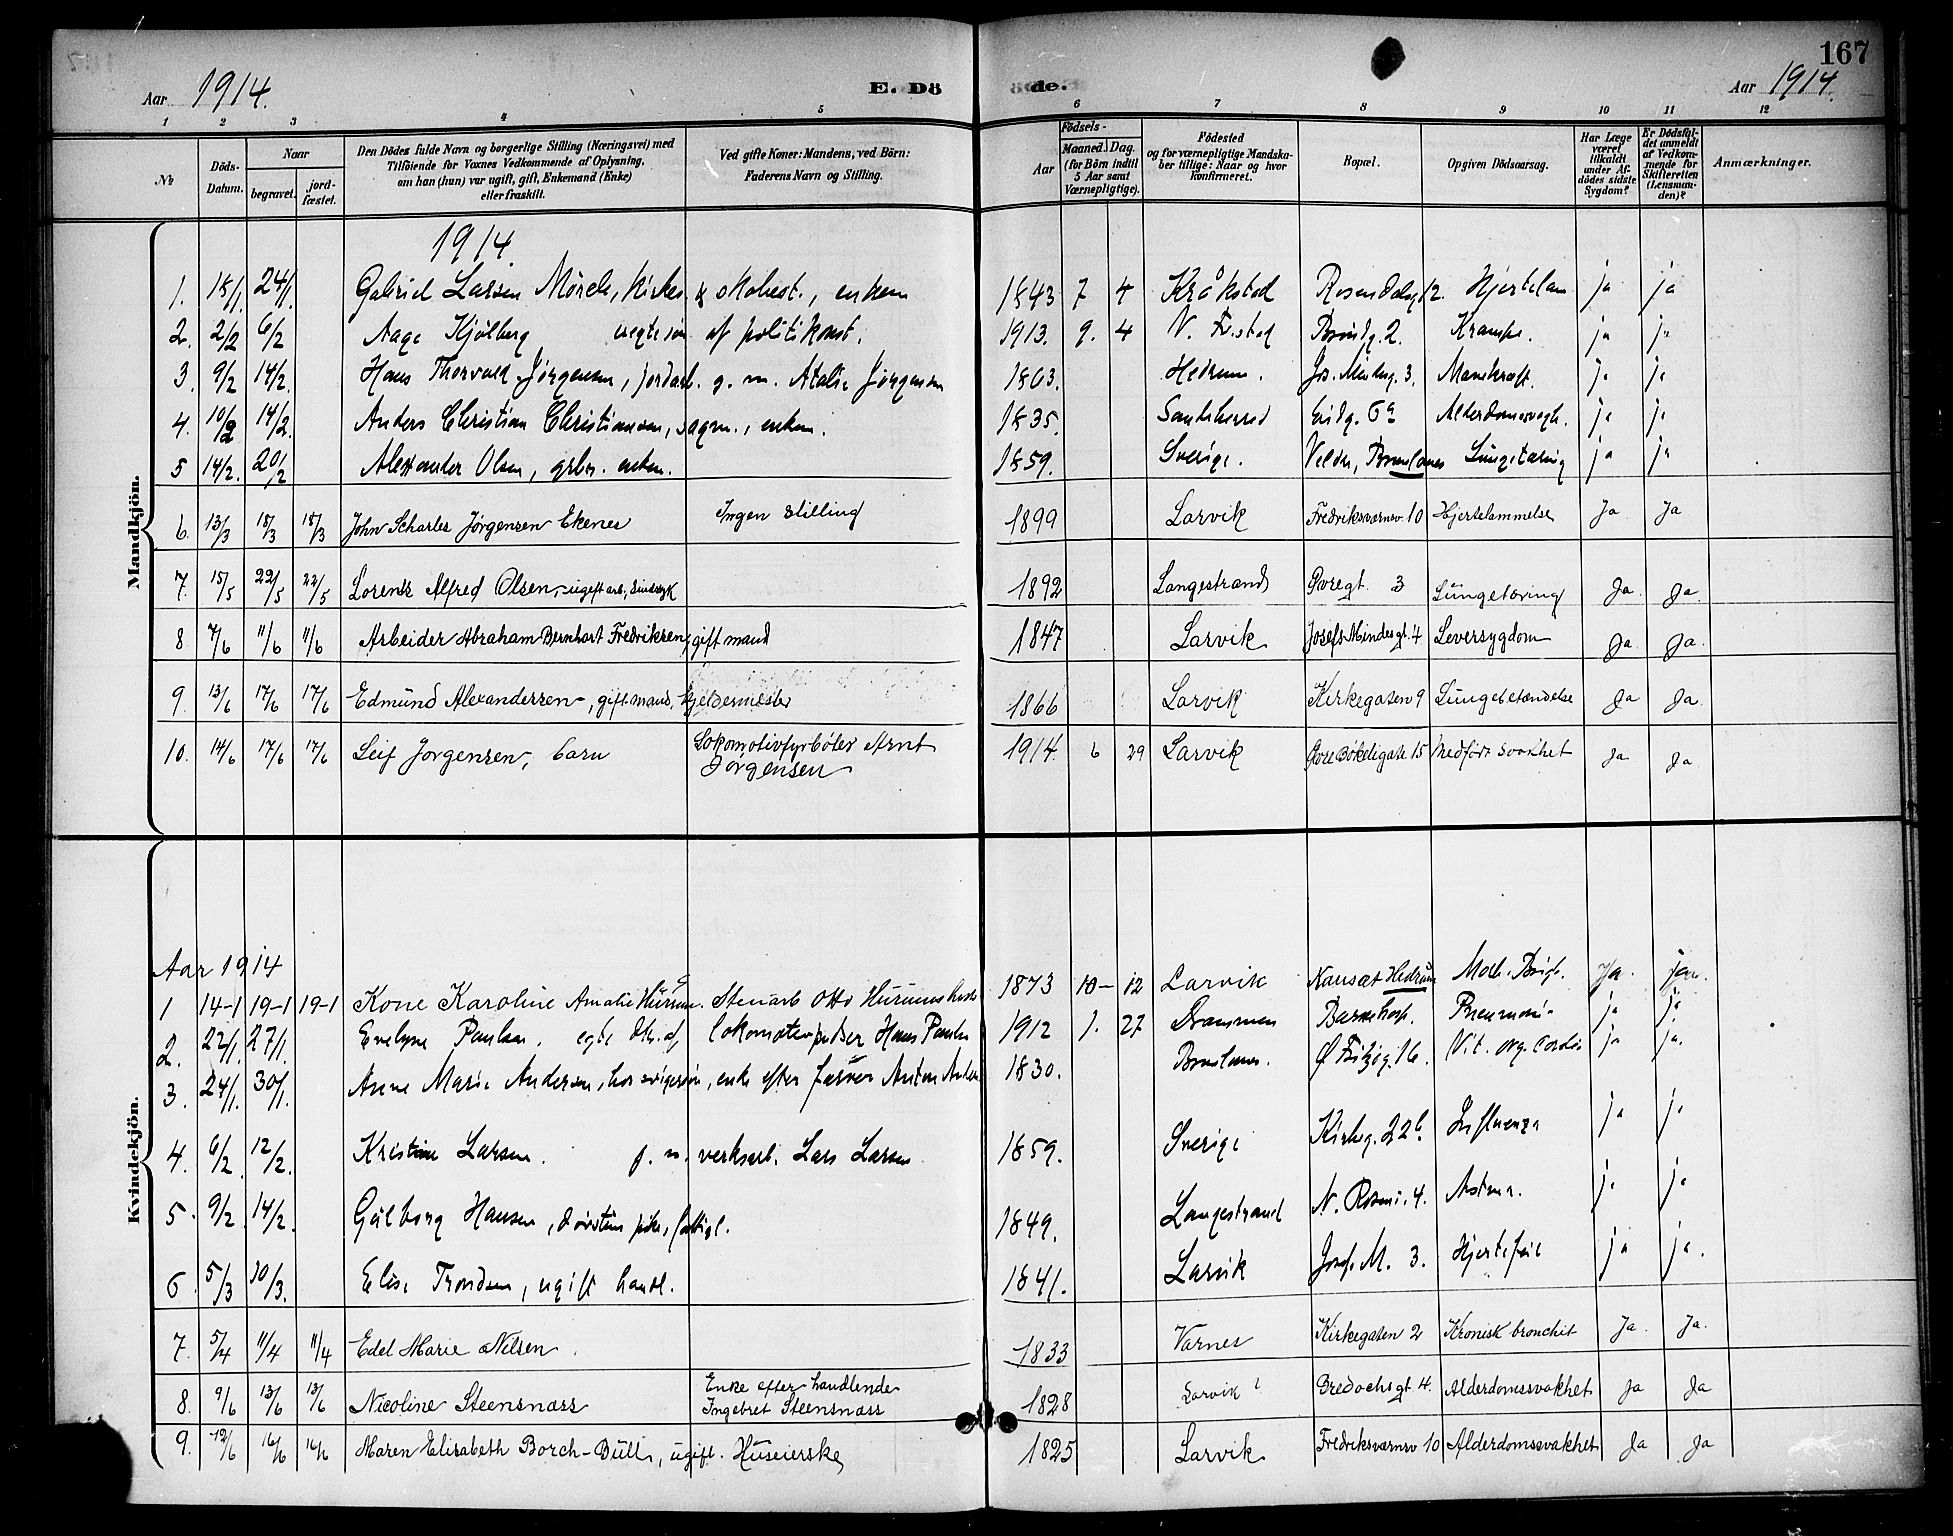 167
Aar 1914. E. Dö de. Aar 1914.
1 2 3 4 5 6 7 8 9 10 11 12
№
Döds-Datum.
Naar
begravet.
jord-fæstet.
Den Dödes fulde Navn og borgerlige Stilling (Næringsvei) med
Tilföiende for Voxnes Vedkommende af Oplysning,
om han (hun) var ugift, gift, Enkemand (Enke)
eller fraskilt.
Ved gifte Koner: Mandens, ved Börn:
Faderens Navn og Stilling.
Födsels-
Aar
Maaned. Dag.
(for Börn indtil
5 Aar samt
Værnepligtige).
Födested
og for værnepligtige Mandska-
ber tillige: Naar og hvor
konfirmeret.
Bopæl.
Opgiven Dödsaarsag.
Har Læge
været
tilkaldt
under Af-
dödes sidste
Sygdom?
Er Dödsfal-
det anmeldt
af Vedkom-
mende for
Skifteretten
(Lensman-
den)?
Anmærkninger.
Mandkjön.
1914.
1. 18/1. 24/1. Gabriel Larsen Mörch, kirke & skolest., enkem 1843 7 4 Kråkstad 12. ja ja
2. 2/2 6/2 Aage Kjölberg uegte sön af politikonst. 1913. 9. 4 V. Fr.stad 2. Krampe. ja ja
3. 9/2 14/2. Hans Thorvald Jörgensen, jordarb. g. m. Atalie Jörgensen 1863. Hedrum. Jos. Mindeg. 3. ja ja
4. 10/2 14/2. Anders Christian Christiansen, sagm., enkem. 1835. Sandeherred ja ja
5 14/2. 20/2 Alexander Olsen, grbr. enkem. 1859. Sverige. Brunlanes Lungetæring ja ja
6. 13/3 18/3 18/3 John Scharles Jörgensen Ekenes Ingen stilling 1899 Larvik Fredriksværnsv 10 Hjertelammelse Ja Ja
7. 15/5 22/5 22/5 Lorents Alfred Olsen, ugift arb., sindssyk 1892 Langestrand Øvregt 3 Lungetæring Ja. Ja.
8 7/6 11/6 11/6 Arbeider Abraham Bernhart Fredriksen, gift mand 1847 Larvik Josefs Mindes gt. 4 Leversygdom Ja. Ja.
9. 13/6 17/6 17/6 Edmund Alexandersen, gift mand, kjeldermester 1866 Larvik Kirkegaten 9 Lungebetændelse Ja Ja
10. 14/6 17/6 17/6 Leif Jorgensen, barn Lokomotivfyrböter Arnt
Jörgensen 1914. 6 29 Larvik Øvre Bökeligate 15 Medfödt svakhet Ja Ja
Kvindekjön.
Aar 1914
1 14-1 19-1 19-1 Kone Karoline Amalie Hurum. Stenarb Otto Hurums 1873 10- 12 Larvik Nansæt Hedrum Ja. ja.
2. 22/1. 27/1. Evelyn Paulsen. egte dtr. af lokomotivpudser Hans Paulsen 1912 1. 27 Drammen Pneumoni ja ja.
3. 24/1. 30/1. Anne Marie Andersen, hos svigersön, enke efter farver Anton Andersen 1830. Brunlanes. Ø Fritzög. 16. Vit. org. cordis ja ja.
4. 6/2. 12/2. Kristine Larsen. g. m. verksarb. Lars Larsen 1859. Sverige Kirkeg. 22b. Influenza ja ja
5. 9/2. 14/2. Gulborg Hansen, fattigl. 1849. Langestrand 4. Astma. ja ja
6. 5/3 10/3. Elise Trondsen, ugift handl. 1841. Larvik Josef. M. 3. Hjertefeil ja ja.
7. 5/4 11/4 11/4 Edel Marie Nilsen. 1833 Varnes Kirkegaten 2 Kronisk bronchit Ja. Ja.
8. 9/6 13/6 13/6 Nicoline Steensnæss Enke efter handlende
Ingebret Steensnæss 1828 Larvik? Bredochsgt 4. Alderdomssvakhet Ja Ja
9. 12/6 16/6 16/6 Maren Elisabeth Borch-Bull, ugift. Huseierske 1825 Larvik Fredriksværnsv 10 Alderdomssvakhet Ja Ja